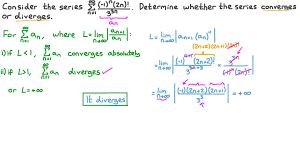 Consider the series ∞ Σ n=1 (-1)ⁿ(2n)! / 3³ⁿ. Determine whether the series converges
or diverges.
aₙ
For ∞ Σ n=1 aₙ, where L = lim n→∞ |aₙ₊₁ / aₙ|:
i) if L < 1, ∞ Σ n=1 aₙ converges absolutely
ii) if L > 1, ∞ Σ n=1 aₙ diverges ✓
or L = +∞
It diverges
L = lim n→∞ |aₙ₊₁ (aₙ)⁻¹|
(2n+2)(2n+1)(2n)!
= lim n→∞ |
= lim n→∞ | (-1)(2n+2)(2n+1) / 3³ | = +∞